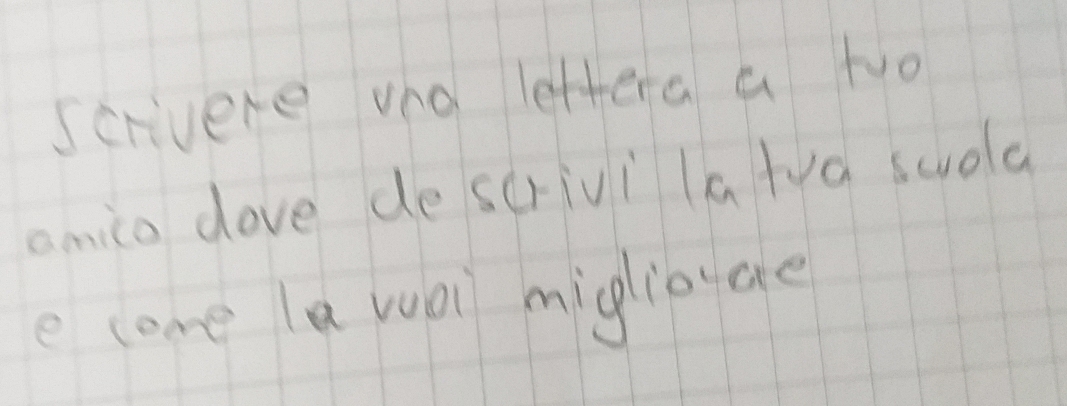 scrivere una lettera a tuo
amico dove descrivi la tua scuola
e come la vuoi migliorare